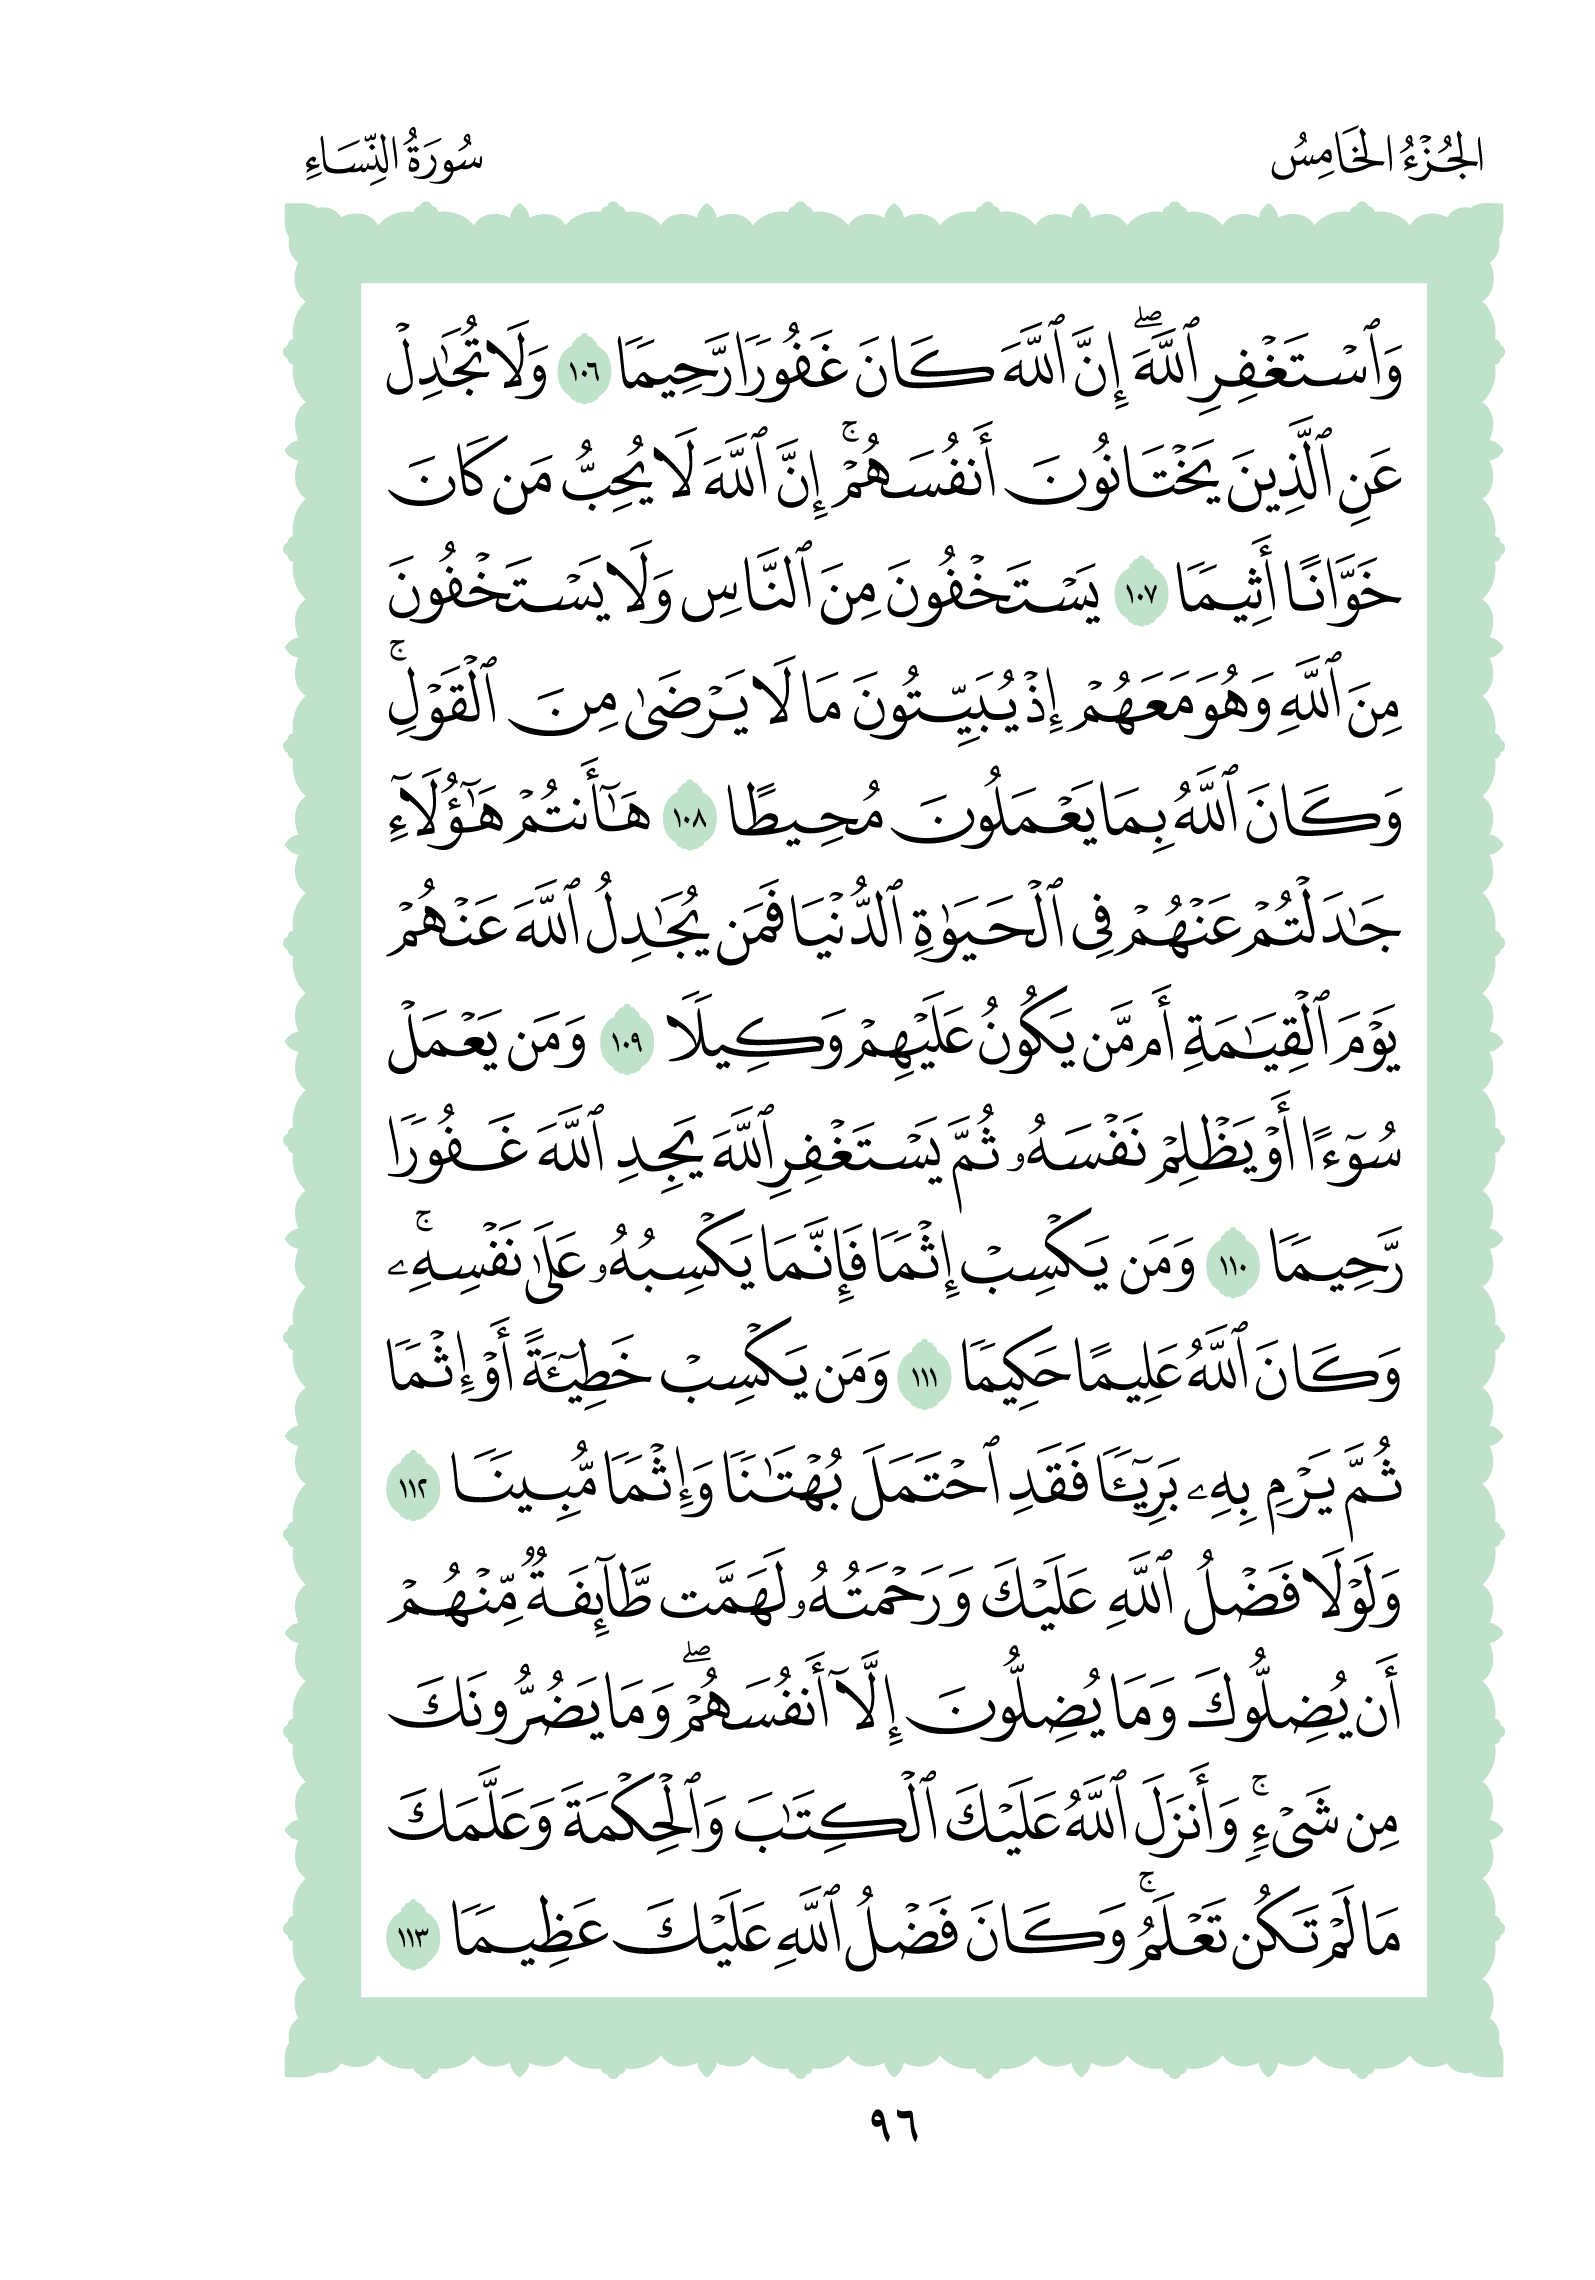 الجُزْءُ الخَامِسُ
سُورَةُ النِّسَاءِ
وَٱسْتَغْفِرِ ٱللَّهَۖ إِنَّ ٱللَّهَ كَانَ غَفُورًا رَّحِيمًا ١٠٦ وَلَا تُجَٰدِلْ
عَنِ ٱلَّذِينَ يَخْتَانُونَ أَنفُسَهُمْۚ إِنَّ ٱللَّهَ لَا يُحِبُّ مَن كَانَ
خَوَّانًا أَثِيمًا ١٠٧ يَسْتَخْفُونَ مِنَ ٱلنَّاسِ وَلَا يَسْتَخْفُونَ
مِنَ ٱللَّهِ وَهُوَ مَعَهُمْ إِذْ يُبَيِّتُونَ مَا لَا يَرْضَىٰ مِنَ ٱلْقَوْلِۚ
وَكَانَ ٱللَّهُ بِمَا يَعْمَلُونَ مُحِيطًا ١٠٨ هَٰٓأَنتُمْ هَٰٓؤُلَآءِ
جَٰدَلْتُمْ عَنْهُمْ فِى ٱلْحَيَوٰةِ ٱلدُّنْيَا فَمَن يُجَٰدِلُ ٱللَّهَ عَنْهُمْ
يَوْمَ ٱلْقِيَٰمَةِ أَم مَّن يَكُونُ عَلَيْهِمْ وَكِيلًا ١٠٩ وَمَن يَعْمَلْ
سُوٓءًا أَوْ يَظْلِمْ نَفْسَهُۥ ثُمَّ يَسْتَغْفِرِ ٱللَّهَ يَجِدِ ٱللَّهَ غَفُورًا
رَّحِيمًا ١١٠ وَمَن يَكْسِبْ إِثْمًا فَإِنَّمَا يَكْسِبُهُۥ عَلَىٰ نَفْسِهِۦۚ
وَكَانَ ٱللَّهُ عَلِيمًا حَكِيمًا ١١١ وَمَن يَكْسِبْ خَطِيٓـَٔةً أَوْ إِثْمًا
ثُمَّ يَرْمِ بِهِۦ بَرِيٓـًٔا فَقَدِ ٱحْتَمَلَ بُهْتَٰنًا وَإِثْمًا مُّبِينًا ١١٢
وَلَوْلَا فَضْلُ ٱللَّهِ عَلَيْكَ وَرَحْمَتُهُۥ لَهَمَّت طَّآئِفَةٌ مِّنْهُمْ
أَن يُضِلُّوكَ وَمَا يُضِلُّونَ إِلَّآ أَنفُسَهُمْۖ وَمَا يَضُرُّونَكَ
مِن شَىْءٍۚ وَأَنزَلَ ٱللَّهُ عَلَيْكَ ٱلْكِتَٰبَ وَٱلْحِكْمَةَ وَعَلَّمَكَ
مَا لَمْ تَكُن تَعْلَمُۚ وَكَانَ فَضْلُ ٱللَّهِ عَلَيْكَ عَظِيمًا ١١٣
٩٦